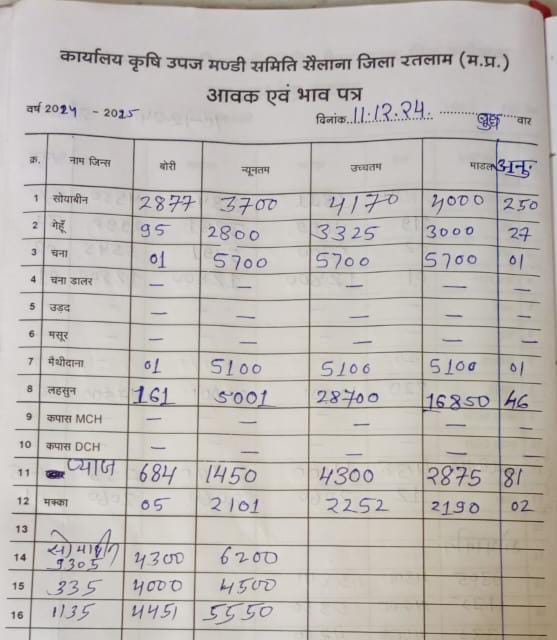 कार्यालय कृषि उपज मण्डी समिति सैलाना जिला रतलाम (म.प्र.)
आवक एवं भाव पत्र
वर्ष 2024 - 2025 दिनांक 11.12.24. बुध वार
क्र. नाम जिन्स बोरी न्यूनतम उच्चतम माडल अनु.
1 सोयाबीन 2877 3700 4170 4000 250
2 गेहूँ 95 2800 3325 3000 27
3 चना 01 5700 5700 5700 01
4 चना डालर — — — — —
5 उड़द — — — — —
6 मसूर — — — — —
7 मैथीदाना 01 5100 5100 5100 01
8 लहसुन 161 5001 28700 16850 46
9 कपास MCH — — — — —
10 कपास DCH — — — — —
11 प्याज 684 1450 4300 2875 81
12 मक्का 05 2101 2252 2190 02
13
14 सोयाबीन 9305 4300 6200
15 335 4000 4500
16 1135 4451 5550